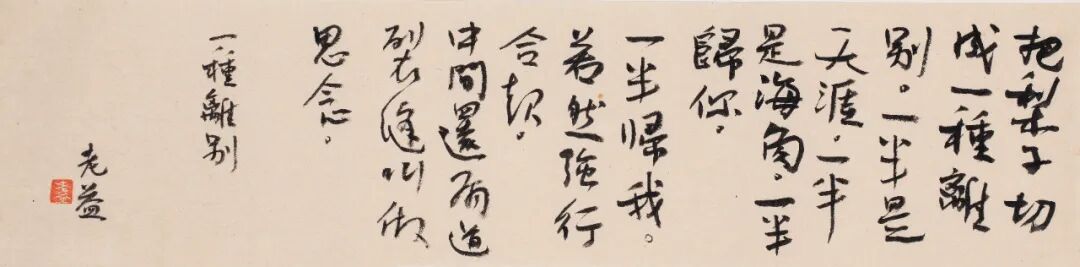 把梨子切
成一種離
别。一半是
天涯，一半
是海角，一半
歸你，
一半帰我。
若然強行
合起，
中間還有道
裂縫叫做
思念。
一種離别
老益